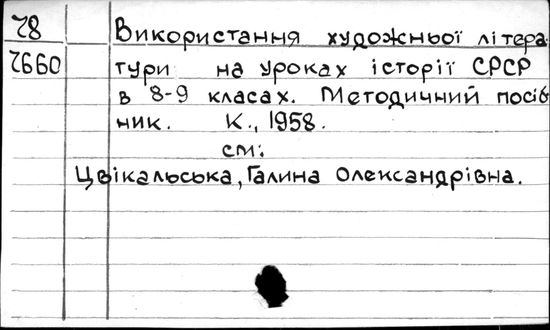 78 Використання художньої літера-
7660 тури на уроках історії СРСР
в 8-9 класах. Методичний посіб
ник. К., 1958.
см:
Цвікальська, Галина Олександрівна.